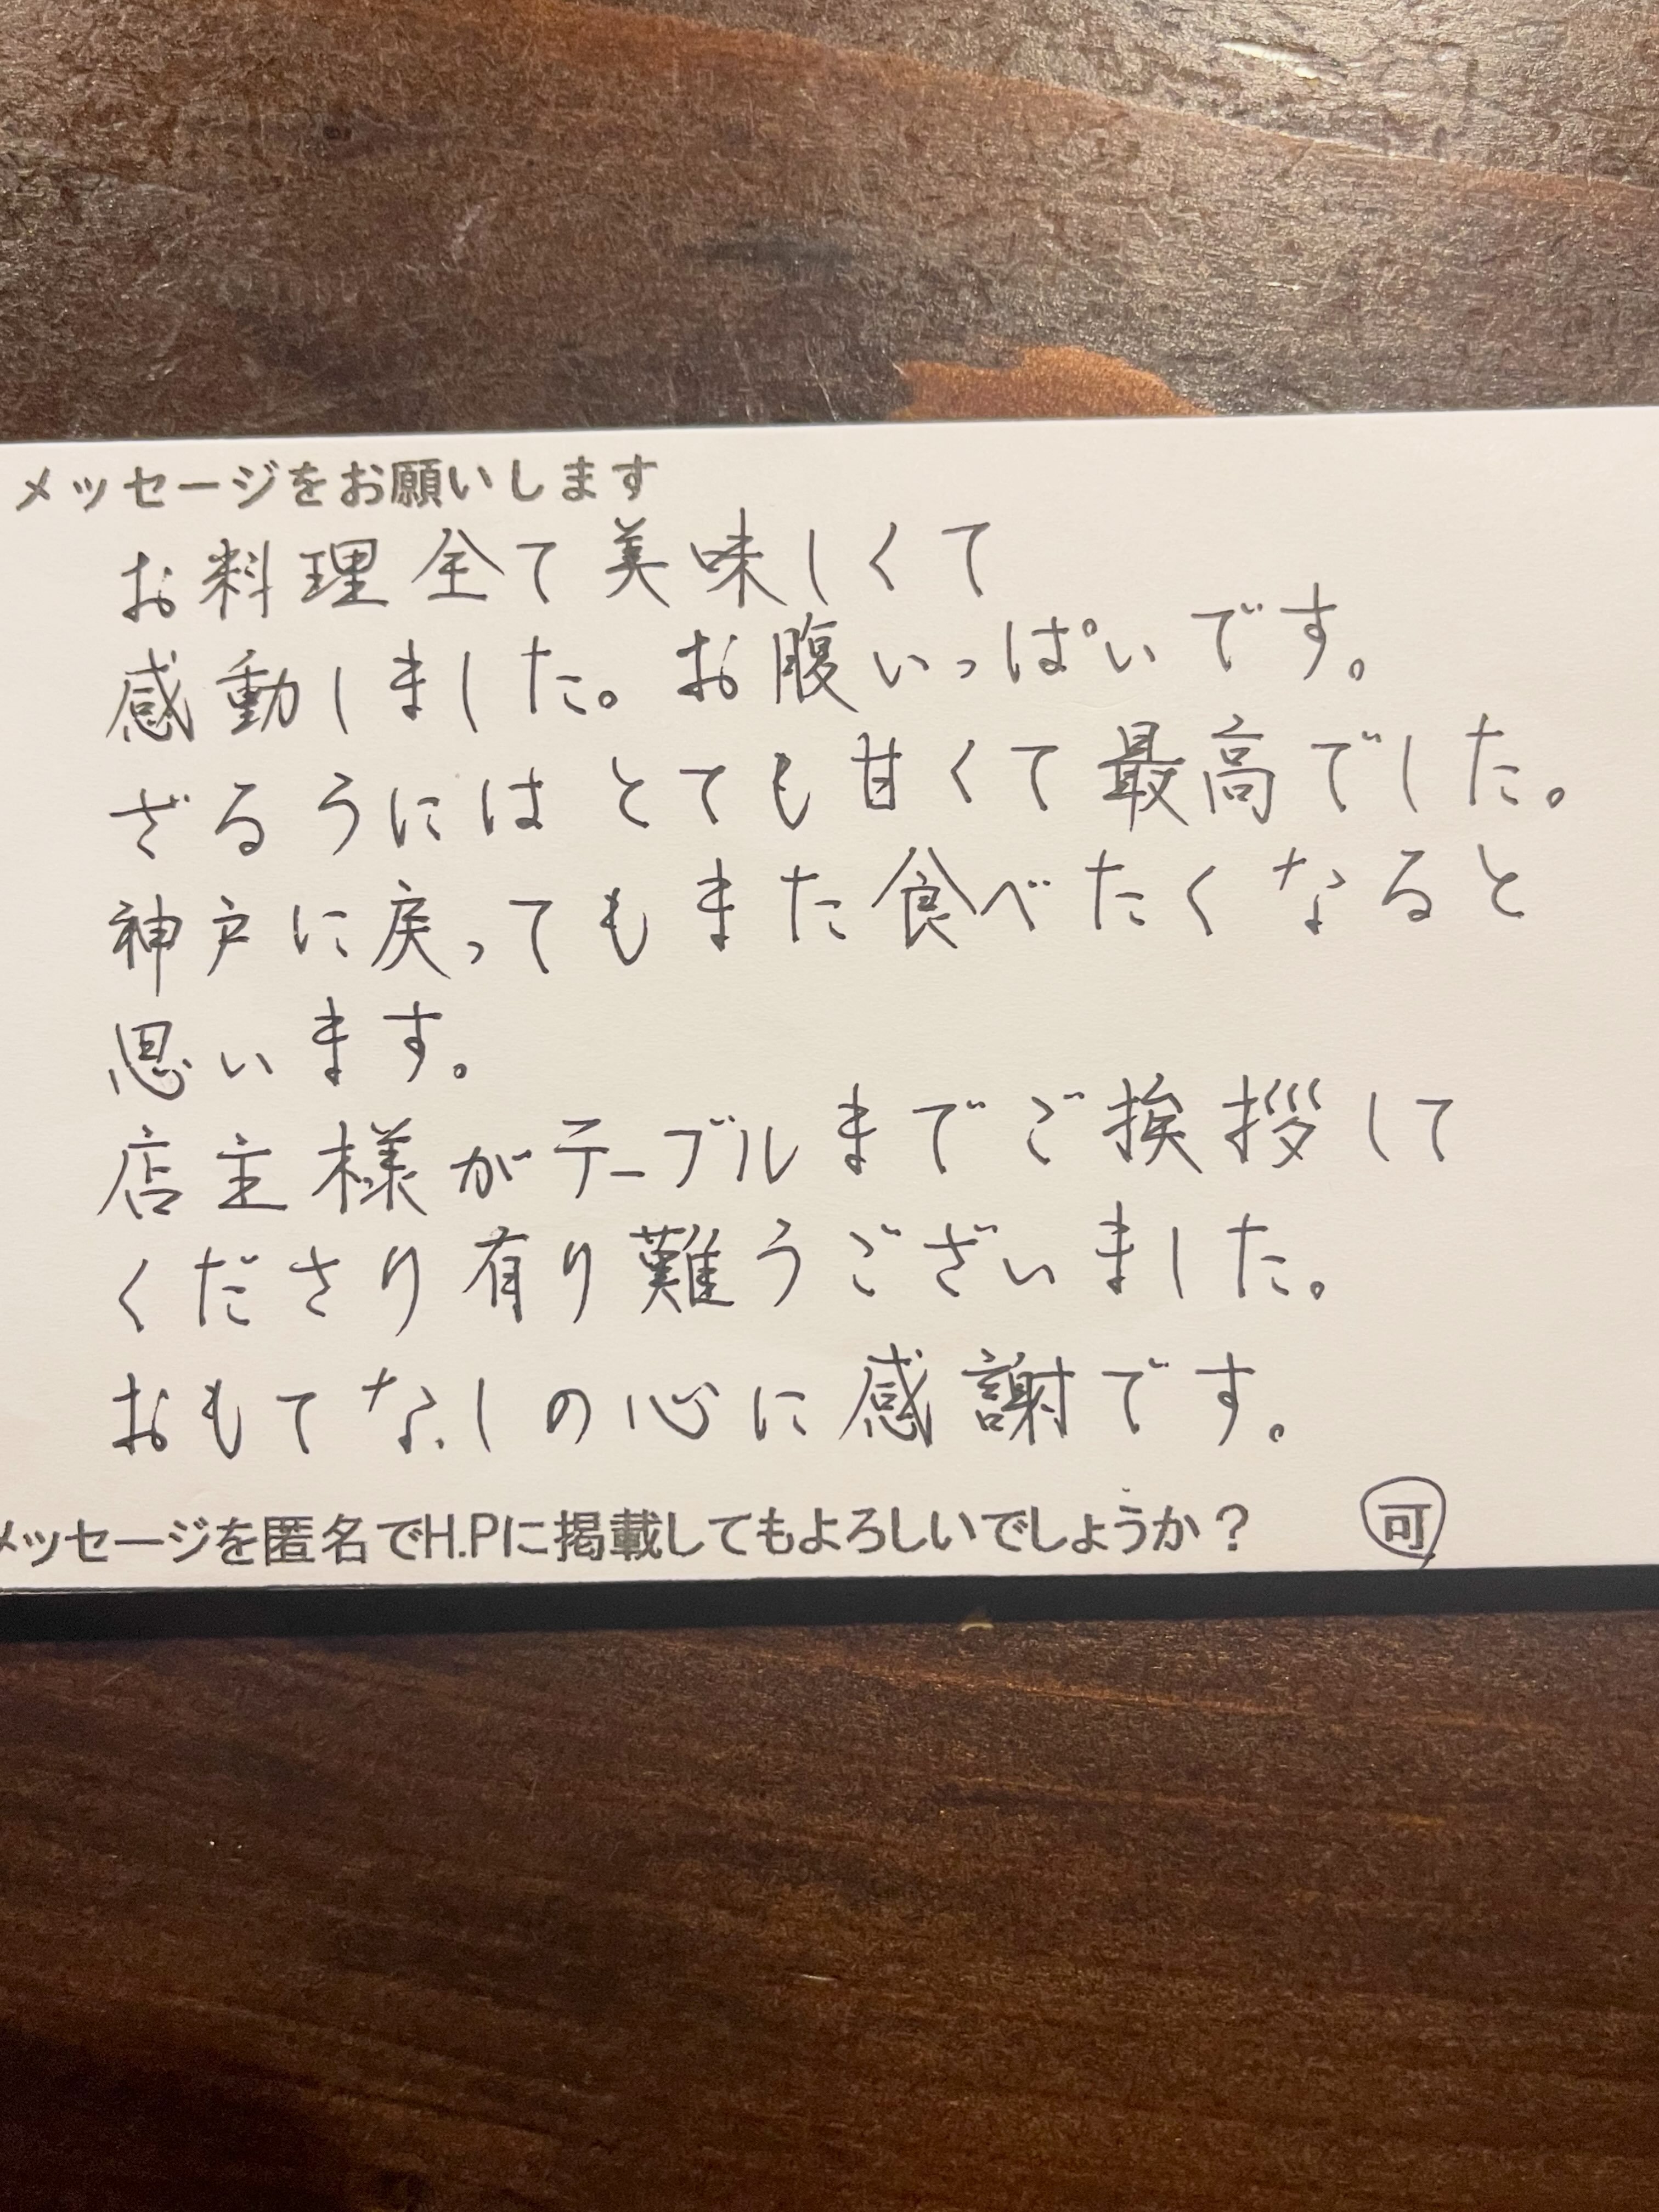 メッセージをお願いします
お料理全て美味しくて
感動しました。お腹いっぱいです。
ざるうにはとても甘くて最高でした。
神戸に戻ってもまた食べたくなると
思います。
店主様がテーブルまでご挨拶して
くださり有り難うございました。
おもてなしの心に感謝です。
メッセージを匿名でH.Pに掲載してもよろしいでしょうか？ 可